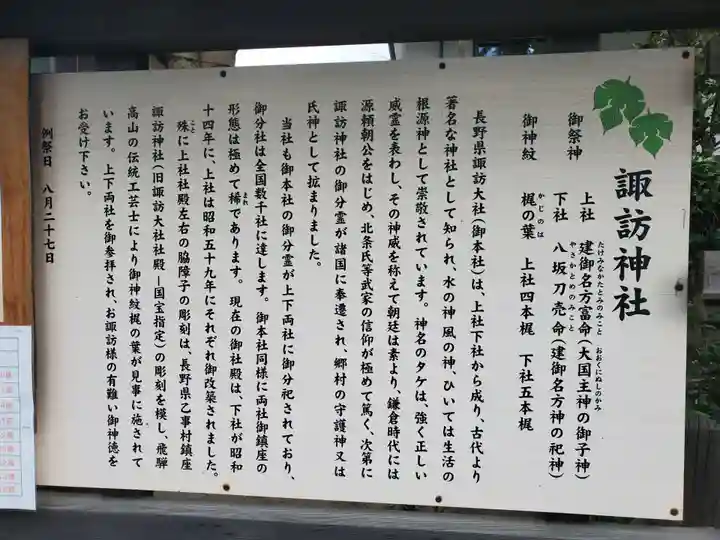 諏訪神社
御祭神
上社 建御名方富命(大国主神の御子神)
たけみなかたとみのみこと おおくにぬしのかみ
下社 八坂刀売命(建御名方神の祀神)
やさかとめのみこと
御神紋
梶の葉 上社四本梶 下社五本梶
かじのは
長野県諏訪大社(御本社)は、上社下社から成り、古代より
著名な神社として知られ、水の神 風の神、ひいては生活の
根源神として崇敬されています。神名のタケは、強く正しい
威霊を表わし、その神威を称えて朝廷は素より、鎌倉時代には
源頼朝公をはじめ、北条氏等武家の信仰が極めて篤く、次第に
諏訪神社の御分霊が諸国に奉遷され、郷村の守護神又は
氏神として拡まりました。
当社も御本社の御分霊が上下両社に御分祀されており、
御分社は全国数千社に達します。御本社同様に両社御鎮座の
形態は極めて稀であります。現在の御社殿は、下社が昭和
まれ
十四年に、上社は昭和五十九年にそれぞれ御改築されました。
殊に上社社殿左右の脇障子の彫刻は、長野県乙事村鎮座
こと
諏訪神社(旧諏訪大社社殿―国宝指定)の彫刻を模し、飛騨
高山の伝統工芸士により御神紋梶の葉が見事に施されて
います。上下両社を御参拝され、お諏訪様の有難い御神徳を
お受け下さい。
例祭日 八月二十七日